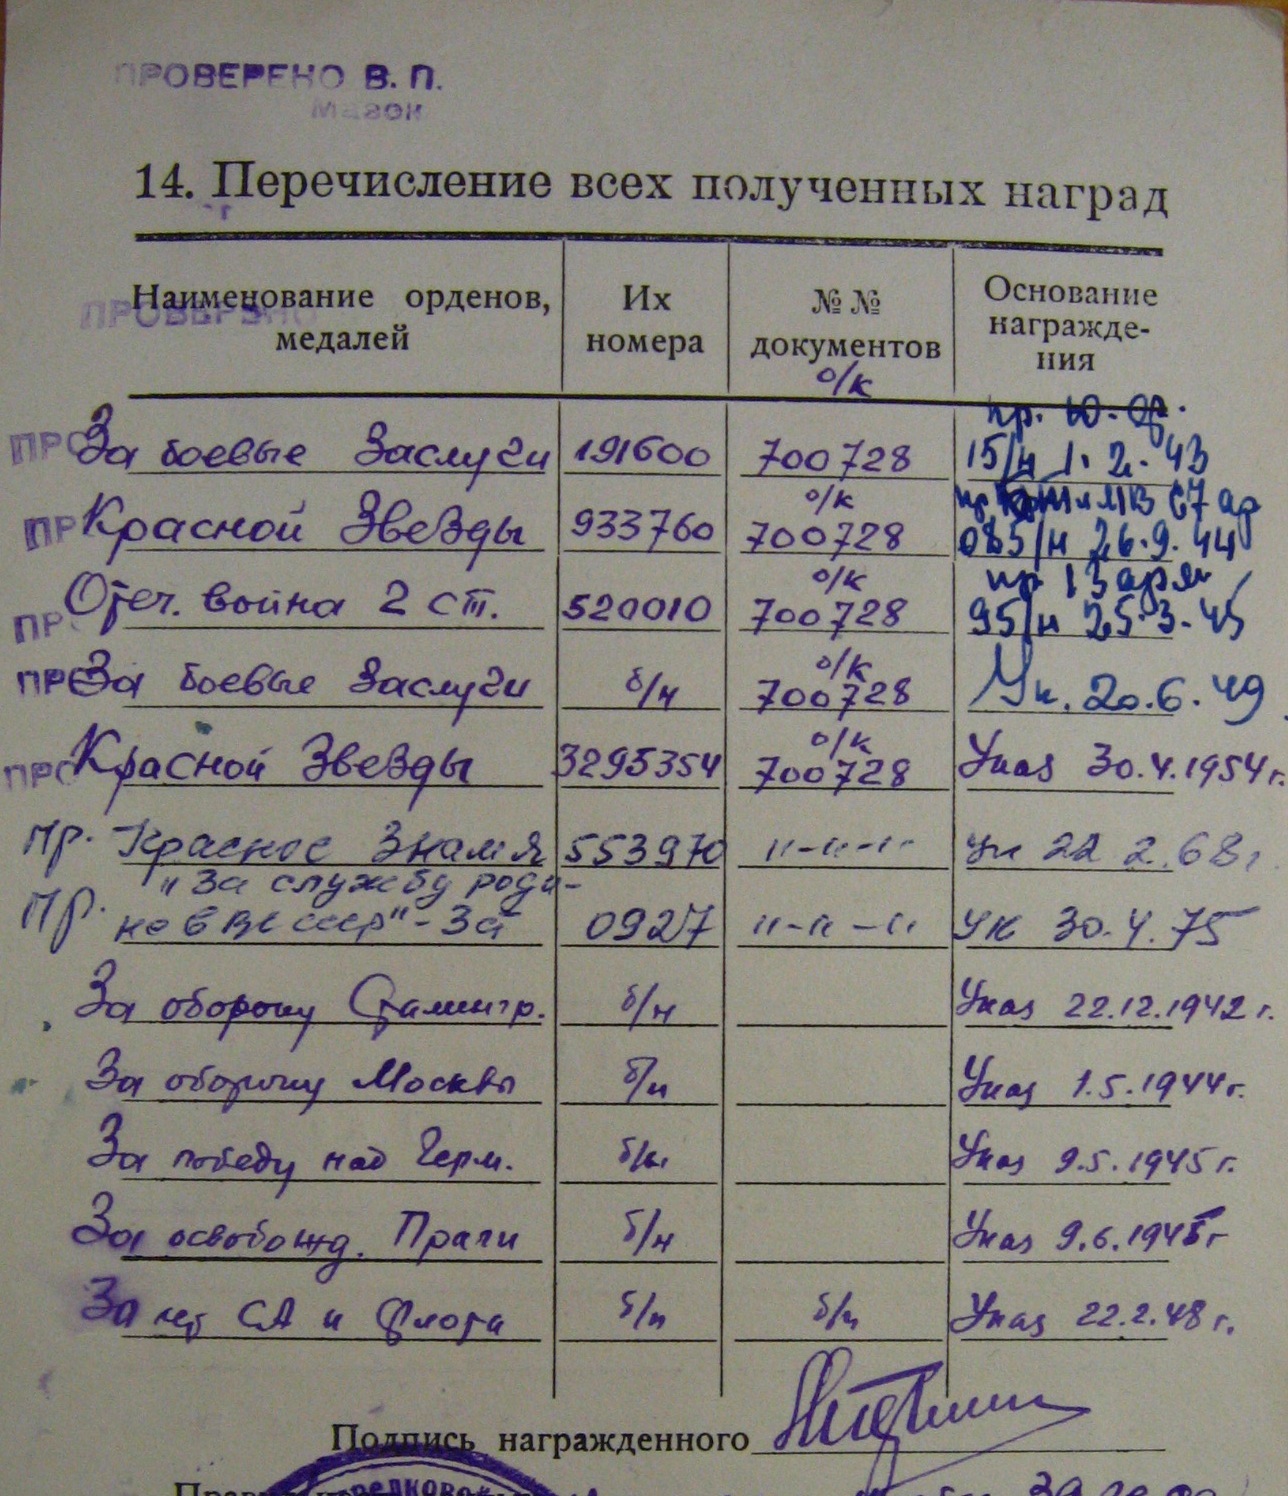 ПРОВЕРЕНО В. П.
14. Перечисление всех полученных наград
Наименование орденов, медалей
Их номера
№ № документов
Основание награжде-
ния
ПРОВЕРЕНО
о/к
пр. 10.
За боевые Заслуги 191600 700728 15/н 1. 2. 43
о/к
Красной Звезды 933760 700728 085/н 26.9.44
о/к пр 13
Отеч. война 2 ст. 520010 700728 95/н 25.3.45
о/к
За боевые Заслуги б/н 700728 Ук. 20.6.49
о/к
Красной Звезды 3295354 700728 Указ 30.4.1954 г.
пр. Красное Знамя 553970 "-"-" Ук 22 2.68г
"За службу роди-
пр. не в ВС СССР"-3 ст 0927 "-"-" Ук 30.4.75
За оборону Сталингр. б/н Указ 22.12.1942 г.
За оборону Москвы б/н Указ 1.5.1944г.
За победу над Герм. б/н Указ 9.5.1945 г.
За освобожд. Праги б/н Указ 9.6.1945г
За СА и Флота б/н б/н Указ 22.2.48 г.
Подпись награжденного